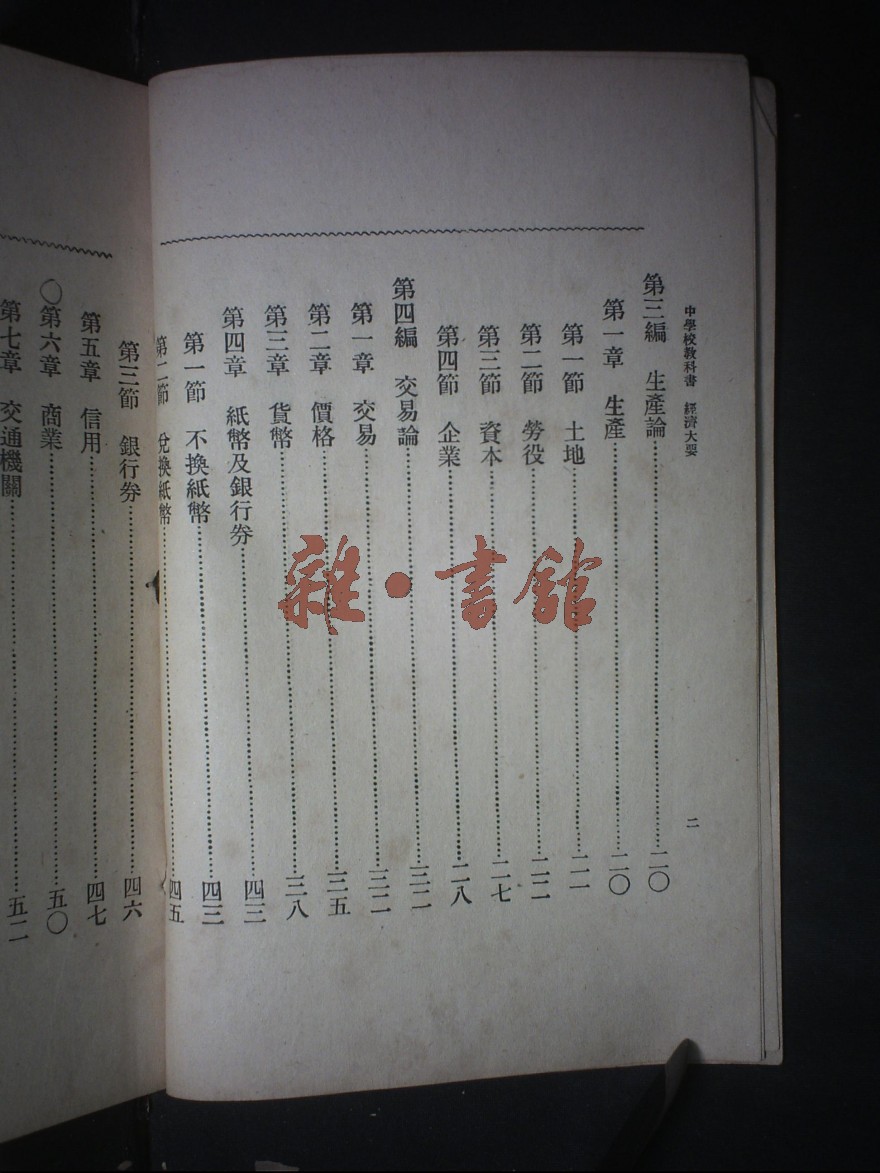 中學校教科書 經濟大要
二
第三編 生產論 二〇
第一章 生產 二〇
第一節 土地 二一
第二節 勞役 二二
第三節 資本 二七
第四節 企業 二八
第四編 交易論 三二
第一章 交易 三二
第二章 價格 三五
第三章 貨幣 三八
第四章 紙幣及銀行券 四三
第一節 不換紙幣 四三
第二節 兌換紙幣 四五
第三節 銀行券 四六
第五章 信用 四七
〇第六章 商業 五〇
第七章 交通機關 五二
雜·書館